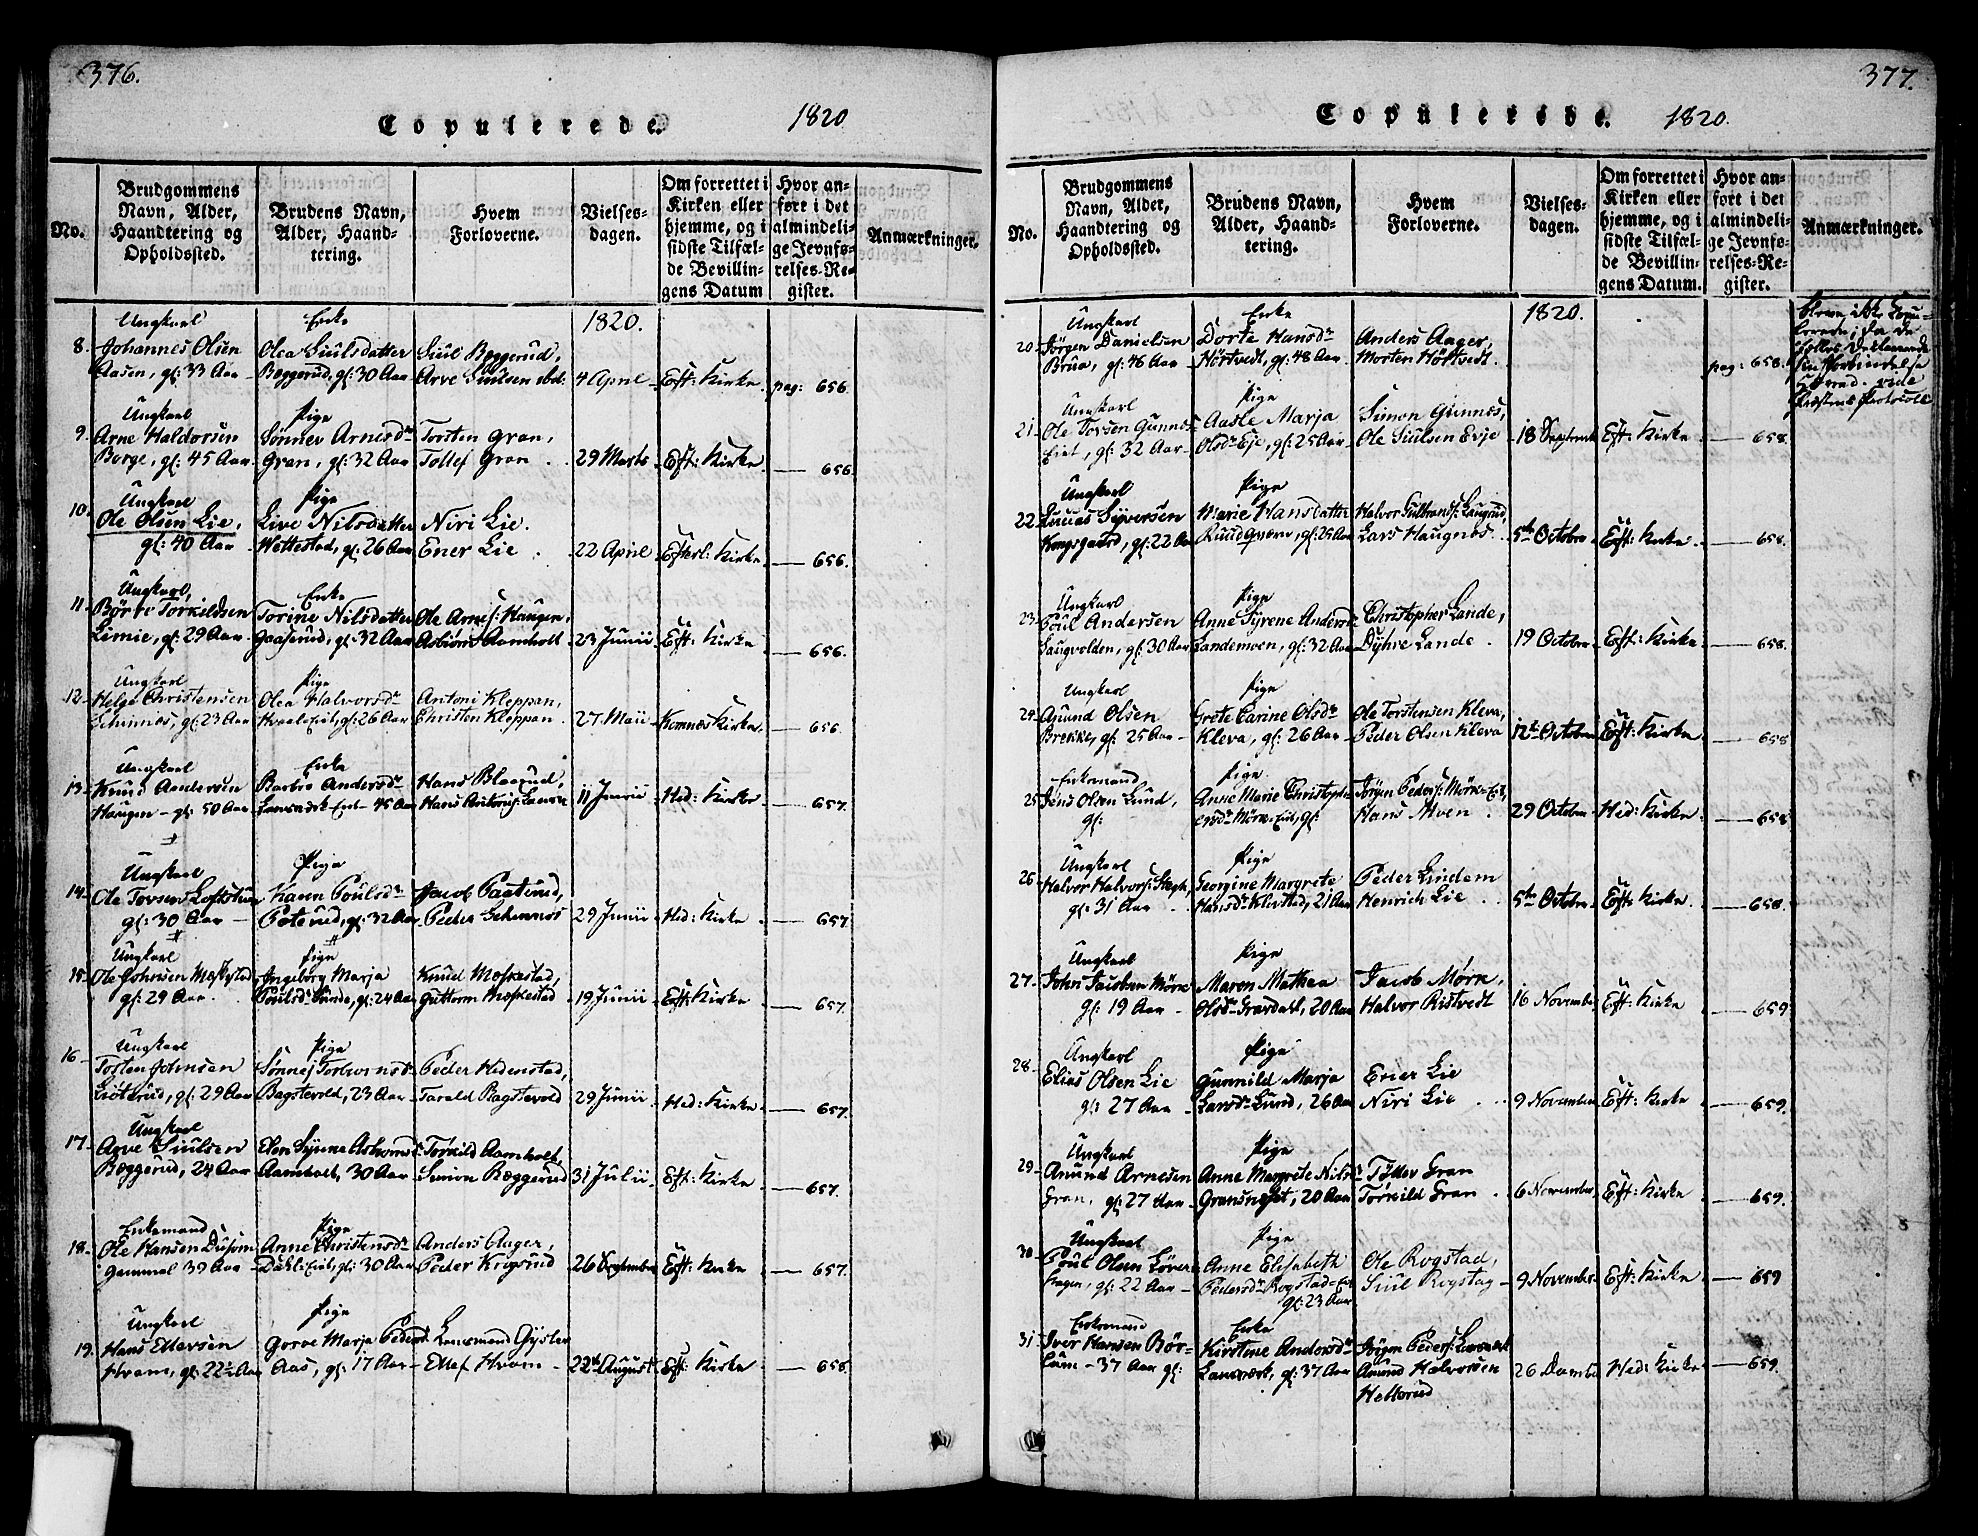 376.
Copulerede. 1820
No.
Brudgommens
Navn, Alder,
Haandtering og
Opholdssted.
Brudens Navn,
Alder, Haand-
tering.
Hvem
Forloverne.
Vielses-
dagen.
Om forrettet i
Kirken eller
hjemme, og i
sidste Tilfæl-
de Bevillin-
gens Datum
Hvor an-
fört i det
almindeli-
ge Jevnfø-
relses-Re-
gister.
Anmærkninger.
1820.
8. Ungkarl
Johannes Olsen
Aasen, gl: 33 Aar
Enke
Olea Siulsdatter
Bæggerud, gl: 30 Aar
Siul Bæggerud,
Arve Siulsen sbd:
4 April Eft: Kirke pag: 656.
9. Ungkarl
Arne Haldorsen
Berge, gl: 45 Aar
Pige
Sønnev Arnesdr
Gran, gl: 32 Aar
Torsten Gran,
Tollef Gran
29 Marts Eft: Kirke 656.
10. Ungkarl
Ole Olsen Lie,
gl: 40 Aar
Pige
Live Nilsdatter
Wettestad, gl: 26 Aar
Niri Lie.
Ener Lie
22 April Efterl: Kirke 656.
11. Ungkarl,
Torkildsen
Limie, gl: 29 Aar
Enke
Torine Nilsdatter
Gaaserud, gl: 32 Aar
Ole Arnes: Haugen,
Asbiörn Aamholt
23 Junii Eft: Kirke 656.
12. Ungkarl
Helge Christensen
gl: 23 Aar
Pige
Olea Halvorsdr
gl: 26 Aar
Antoni Kleppan,
Christen Kleppan
27 Maii Komnes Kirke. 656.
13. Ungkarl
Knud Andersen
Haugen - gl: 50 Aar
Enke
Barbro Andersdr
Lansværk Eiet 45 Aar
Hans Blaarud,
Hans
11 Junii Hed: Kirke 657.
14. Ungkarl
Ole Torsen
gl: 30 Aar
Pige
Karen Poulsdr
gl: 32 Aar
Jacob
Peder
29 Junii Hed: Kirke 657.
15. Ungkarl
Ole Johnsen Moskestad
gl: 29 Aar.
Pige
Ingeborg Marja
Poulsdr Sunde, gl: 24 Aar
Knud Moskestad,
Guttorm Moskestad
19 Junii Eft: Kirke 657.
16. Ungkarl
Tosten Johnsen
Liöterud, gl: 29 Aar
Pige
Sønnej
Bagstevold, 23 Aar
Peder Hedenstad,
Tarald Bagstevold
29 Junii Hed: Kirke 657.
17. Ungkarl
Arve Siulsen
Bæggerud, 24 Aar
Elen Syrene
Aamholt, 30 Aar
Torkild Aamholt,
Simon Bæggerud
31 Julii Eft: Kirke 657.
18. Enkemand
Ole Hansen
Gammel 39 Aar
Pige
Anne Christensdr
gl: 30 Aar
Anders Aager,
Peder Krigsrud
26 September Eft: Kirke 657.
19. Ungkarl
Hans Ellevsen
Hvam, gl: 22½ Aar
Pige
Gorve Marja Peders:
Aas, gl: 17 Aar
Lensmand Gysler
Ellef Hvam
22d August Eft: Kirke 658.
377.
Copulerede. 1820.
No.
Brudgommens
Navn, Alder,
Haandtering og
Opholdssted.
Brudens Navn,
Alder, Haand-
tering.
Hvem
Forloverne.
Vielses-
dagen.
Om forrettet i
Kirken eller
hjemme, og i
sidste Tilfæl-
de Bevillin-
gens Datum.
Hvor an-
fört i det
almindeli-
ge Jevnfø-
relses-Re-
gister.
Anmærkninger.
1820.
20. Ungkarl
Jørgen Danielsen
Brua, gl: 46 Aar
Enke
Dorte Hansdr
Hörtvedt, gl: 48 Aar
Anders Aager,
Morten Hörtvedt.
pag: 658.
bleve ikke
21. Ungkarl
Ole Torsen Gunnes
Eiet, gl: 32 Aar
Pige
Aasle Marja
Olsdr Eje, gl: 25 Aar
Simon Gunnes,
Ole Siulsen Evje
18 Septemb Eft: Kirke 658.
22. Ungkarl
Lucas Syversen
Kongsgaard, gl: 22 Aar
Pige
Marie Hansdatter
Ruud Qværn, gl: 25 Aar
Halvor Gulbrands: Laugrud,
Lars Haugnes.
5te October Eft: Kirke 658.
23. Ungkarl
Poul Andersen
Haugvolden, gl: 30 Aar
Pige
Anne Syrene Andersdr
Landemoen, gl: 32 Aar
Christopher Lande,
Dyhre Lande.
19 October Eft: Kirke 658.
24. Ungkarl
Amund Olsen
Brekke, gl: 25 Aar
Pige
Grete Carine Olsdr
Kleva, gl: 26 Aar
Ole Torstensen Kleva,
Peder Olsen Kleva
12te October Eft: Kirke 658
25. Enkemand,
Jens Olsen Lund,
gl:
Pige.
Anne Marie Christoph-
ersdr Mörk-Eiet, gl:
Jörgen Peders: Mörk-Eiet,
Hans Moen
29 October Hed: Kirke 658
26. Ungkarl
Halvor Halvors:
gl: 31 Aar
Pige
Georgine Margrete
Hansdr Klevstad, 21 Aar
Peder Lindem
Henrich Lie
5te October Eft: Kirke 658.
27. Ungkarl
John Jacobsen Mörk
gl: 19 Aar
Pige
Maren Mathea
Olsdr Gravdal, 20 Aar
Jacob Mörk,
Halvor Ristvedt
16 November Eft: Kirke 659
28. Ungkarl
Elias Olsen Lie
gl: 27 Aar
Pige
Gunnild Marja
Larsdr Lund, 26 Aar
Ener Lie
Niri Lie
9 November Eft: Kirke 659.
29. Ungkarl
Anund Arnesen
Gran, gl: 27 Aar
Pige
Anne Margrete Nils-
20 Aar
Töllev Gran
Törkild Gran
6 November Eft: Kirke 659.
30. Ungkarl
Poul Olsen
gl: 22 Aar
Pige
Anne Elisabeth
Pedersdr Rogstad-Eiet
gl: 23 Aar
Ole Rogstad,
Siul Rogstag
9 November. Eft: Kirke 659
31. Enkemand
Iver Hansen Bör-
- 37 Aar gl:
Enke
Kirstine Andersdr
Lansværk, gl: 37 Aar
Jörgen Peders: Lansværk
Amund Halvorsen
Hellerud
26 Decemb Hed: Kirke 659.